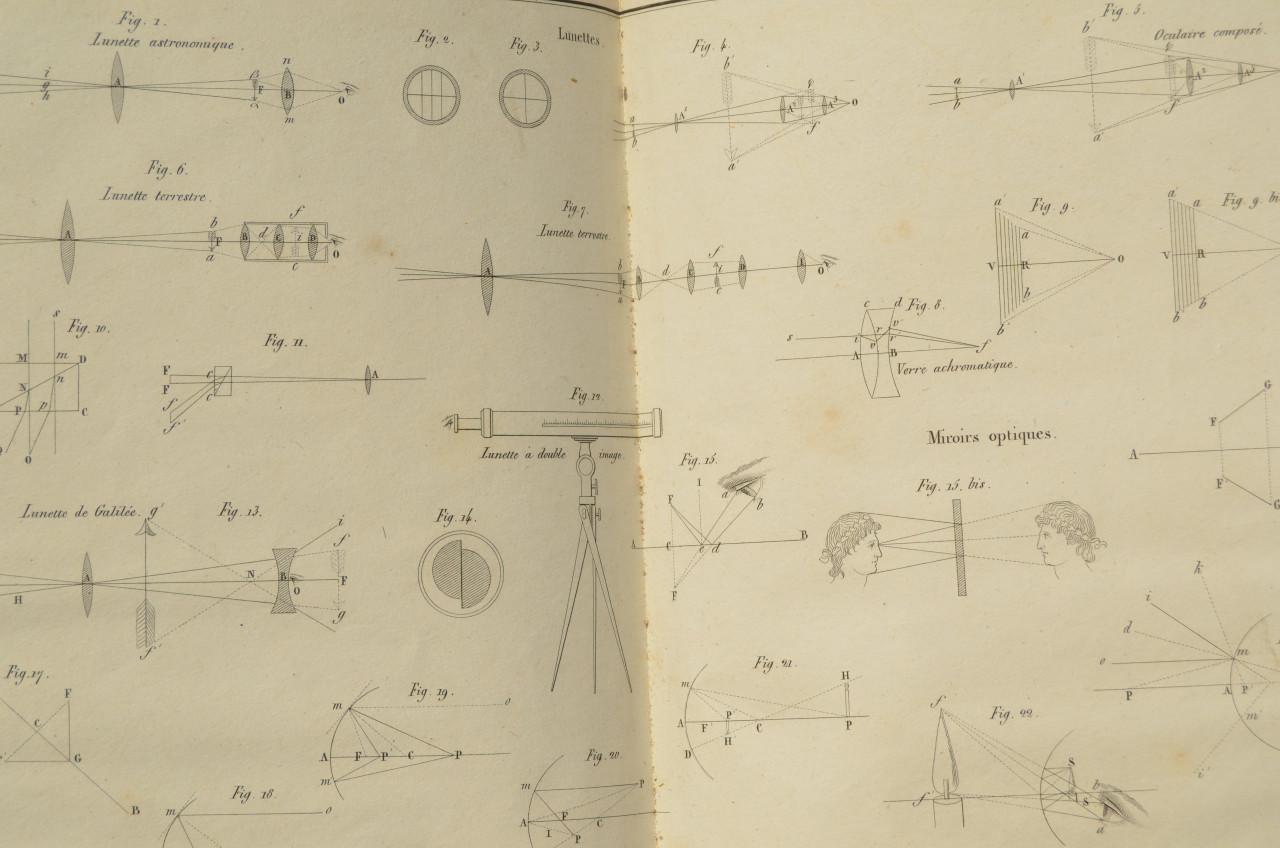 Lunettes.
Fig. 1.
Lunette astronomique.
i
g
h
A
β
F
α
n
B
m
O
Fig. 2.
Fig. 3.
Fig. 4.
b'
a
b
A'
A²
A³
O
f
a'
Fig. 5.
Oculaire composé.
b'
a
b
A'
A²
A³
f
a'
Fig. 6.
Lunette terrestre.
A
b
F
a
B
d
C
i
D
f
c
O
Fig. 7.
Lunette terrestre.
A
b
a
B
d
C
f
c
D
E
O
Fig. 8.
c
d
s
i
r
v
v
r'
A
B
f
Verre achromatique.
Fig. 9.
a'
a
V
R
b
b'
O
Fig. 9. bi
a'
a
V
R
b
b'
Fig. 10.
s
M
m
D
N
n
P
p
C
O
Fig. 11.
F
F
c
c
f
f'
A
Fig. 12.
Lunette à double image.
Lunette de Galilée.
Fig. 13.
g'
i
f
A
N
B
O
F
H
g
f'
Fig. 14.
Miroirs optiques.
Fig. 15.
I
F
a
b
A
C
c
d
B
F
Fig. 15. bis.
G
F
A
F
G
k
i
d
o
m
P
A
P'
m'
i'
Fig. 17.
F
C
G
B
Fig. 18.
m
o
Fig. 19.
m
o
A
F
P
C
P
m
Fig. 20.
m
P
A
F
C
I
P
Fig. 21.
m
H
A
F
P
C
P
H
D
Fig. 22.
f
S
b
f
S
a